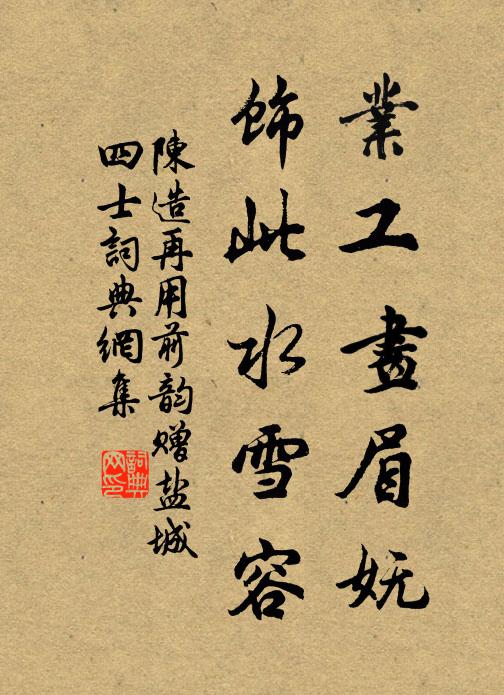 業工畫眉妩
飾此水雪容
陳造再用前韵赠盐城
四士詞典網集
詞典
网印